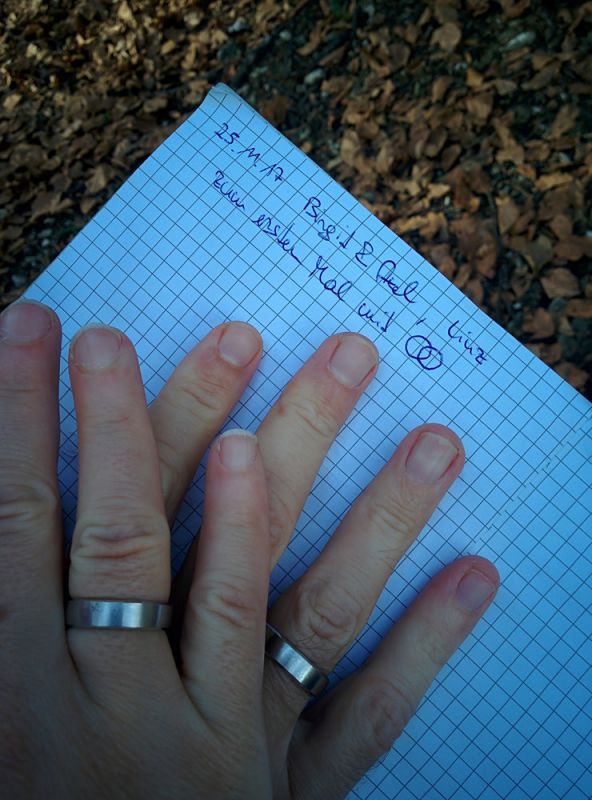 25.11.17 Birgit & Axel, Linz
zum ersten Mal mit